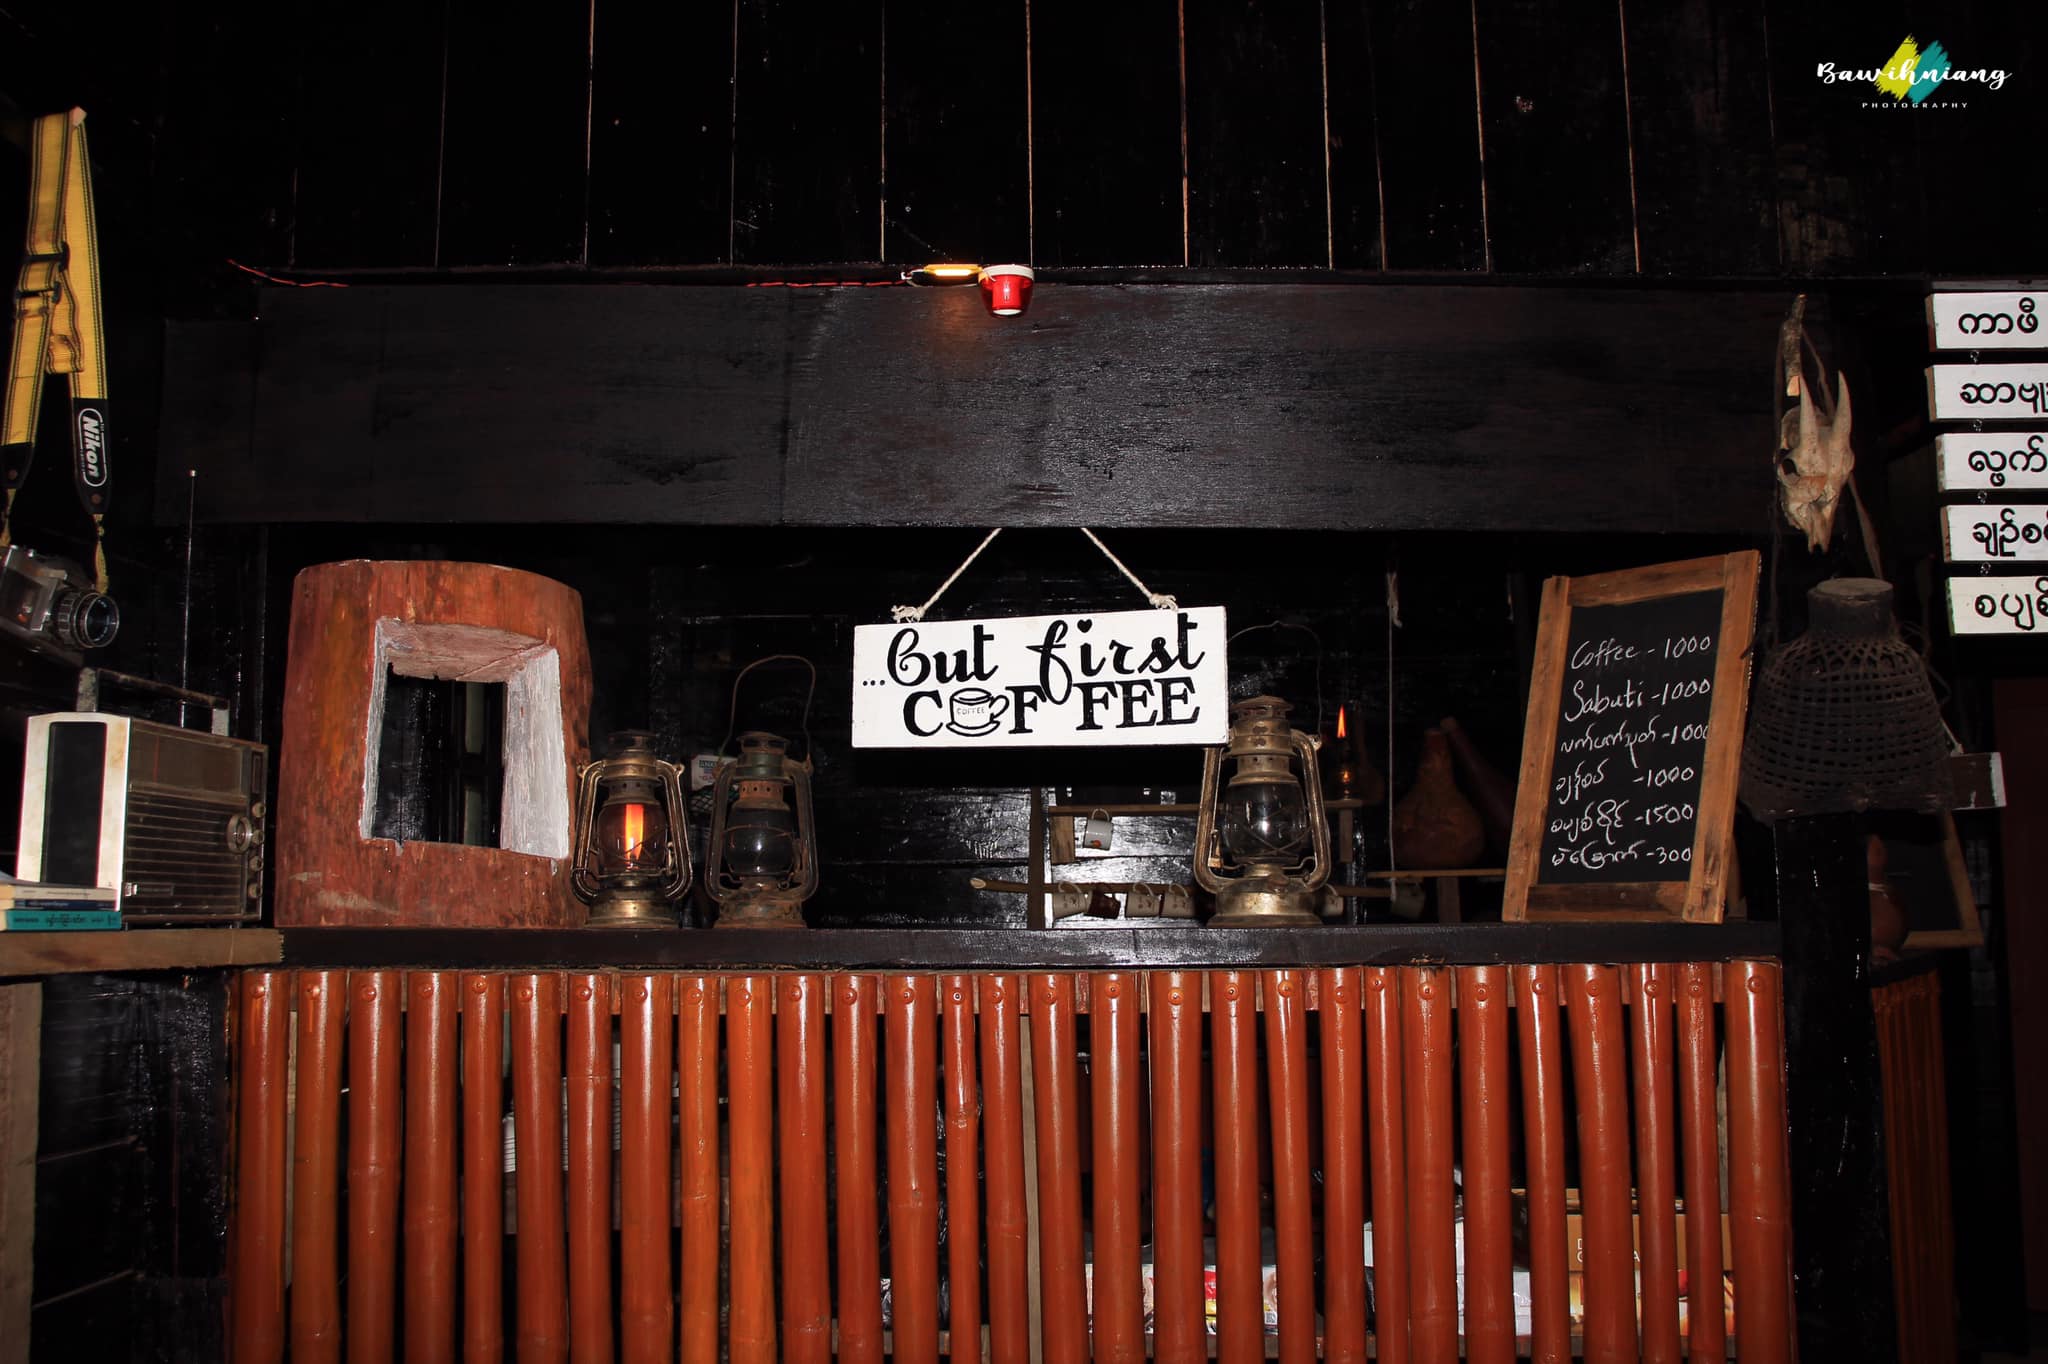 Bawihniang
PHOTOGRAPHY
Nikon
...but first
COFFEE
COFFEE
Coffee - 1000
Sabuti - 1000
လက်ဖက်သုတ် - 1000
ချဉ်စပ် - 1000
စပျစ်ဝိုင် - 1500
မဲခြောက် - 300
ကာဖီ
ဆာဗျု
လွဖက်
ချဉ်စ
စပျစ်